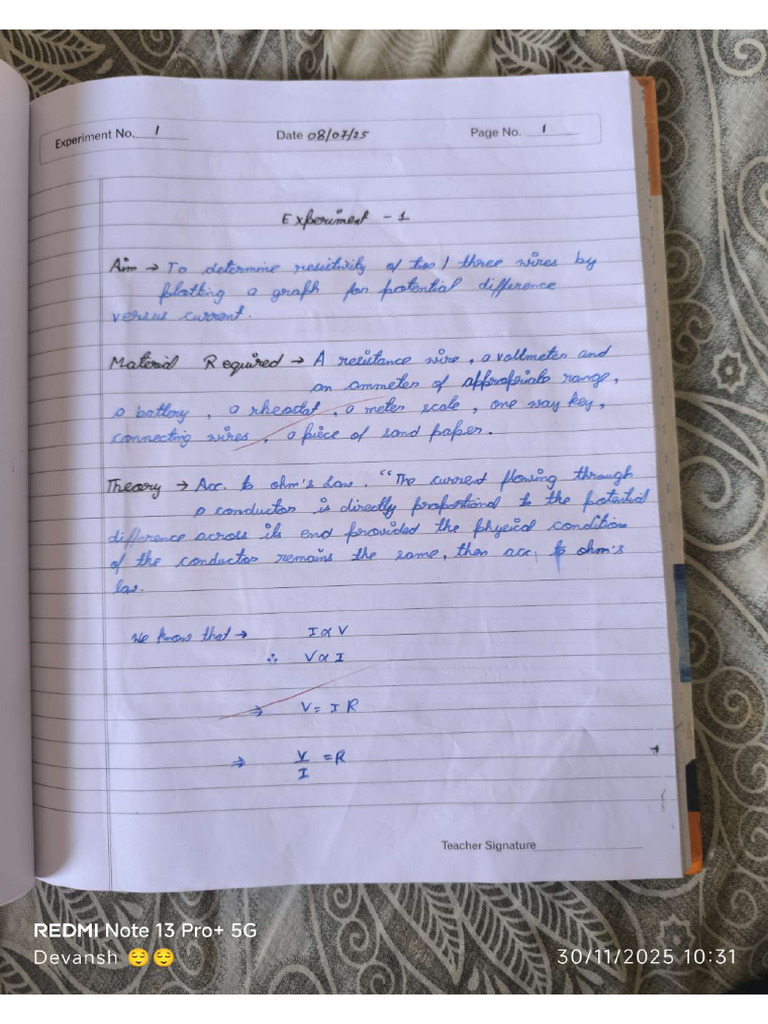 Experiment No. 1 Date 08/07/25 Page No. 1
Experiment - 1
Aim → To determine resistivity of two / three wires by
plotting a graph for potential difference
versus current.
Material Required → A resistance wire, a voltmeter and
an ammeter of appropriate range,
a battery, a rheostat, a meter scale, one way key,
connecting wires, a piece of sand paper.
Theory → Acc. to ohm's Law. "The current flowing through
a conductor is directly proportional to the potential
difference across its end provided the physical conditions
of the conductor remains the same, then acc. to ohm's
law.
We know that → I ∝ V
∴ V ∝ I
⇒ V = I R
⇒ V/I = R
Teacher Signature
REDMI Note 13 Pro+ 5G
Devansh 😌😌 30/11/2025 10:31